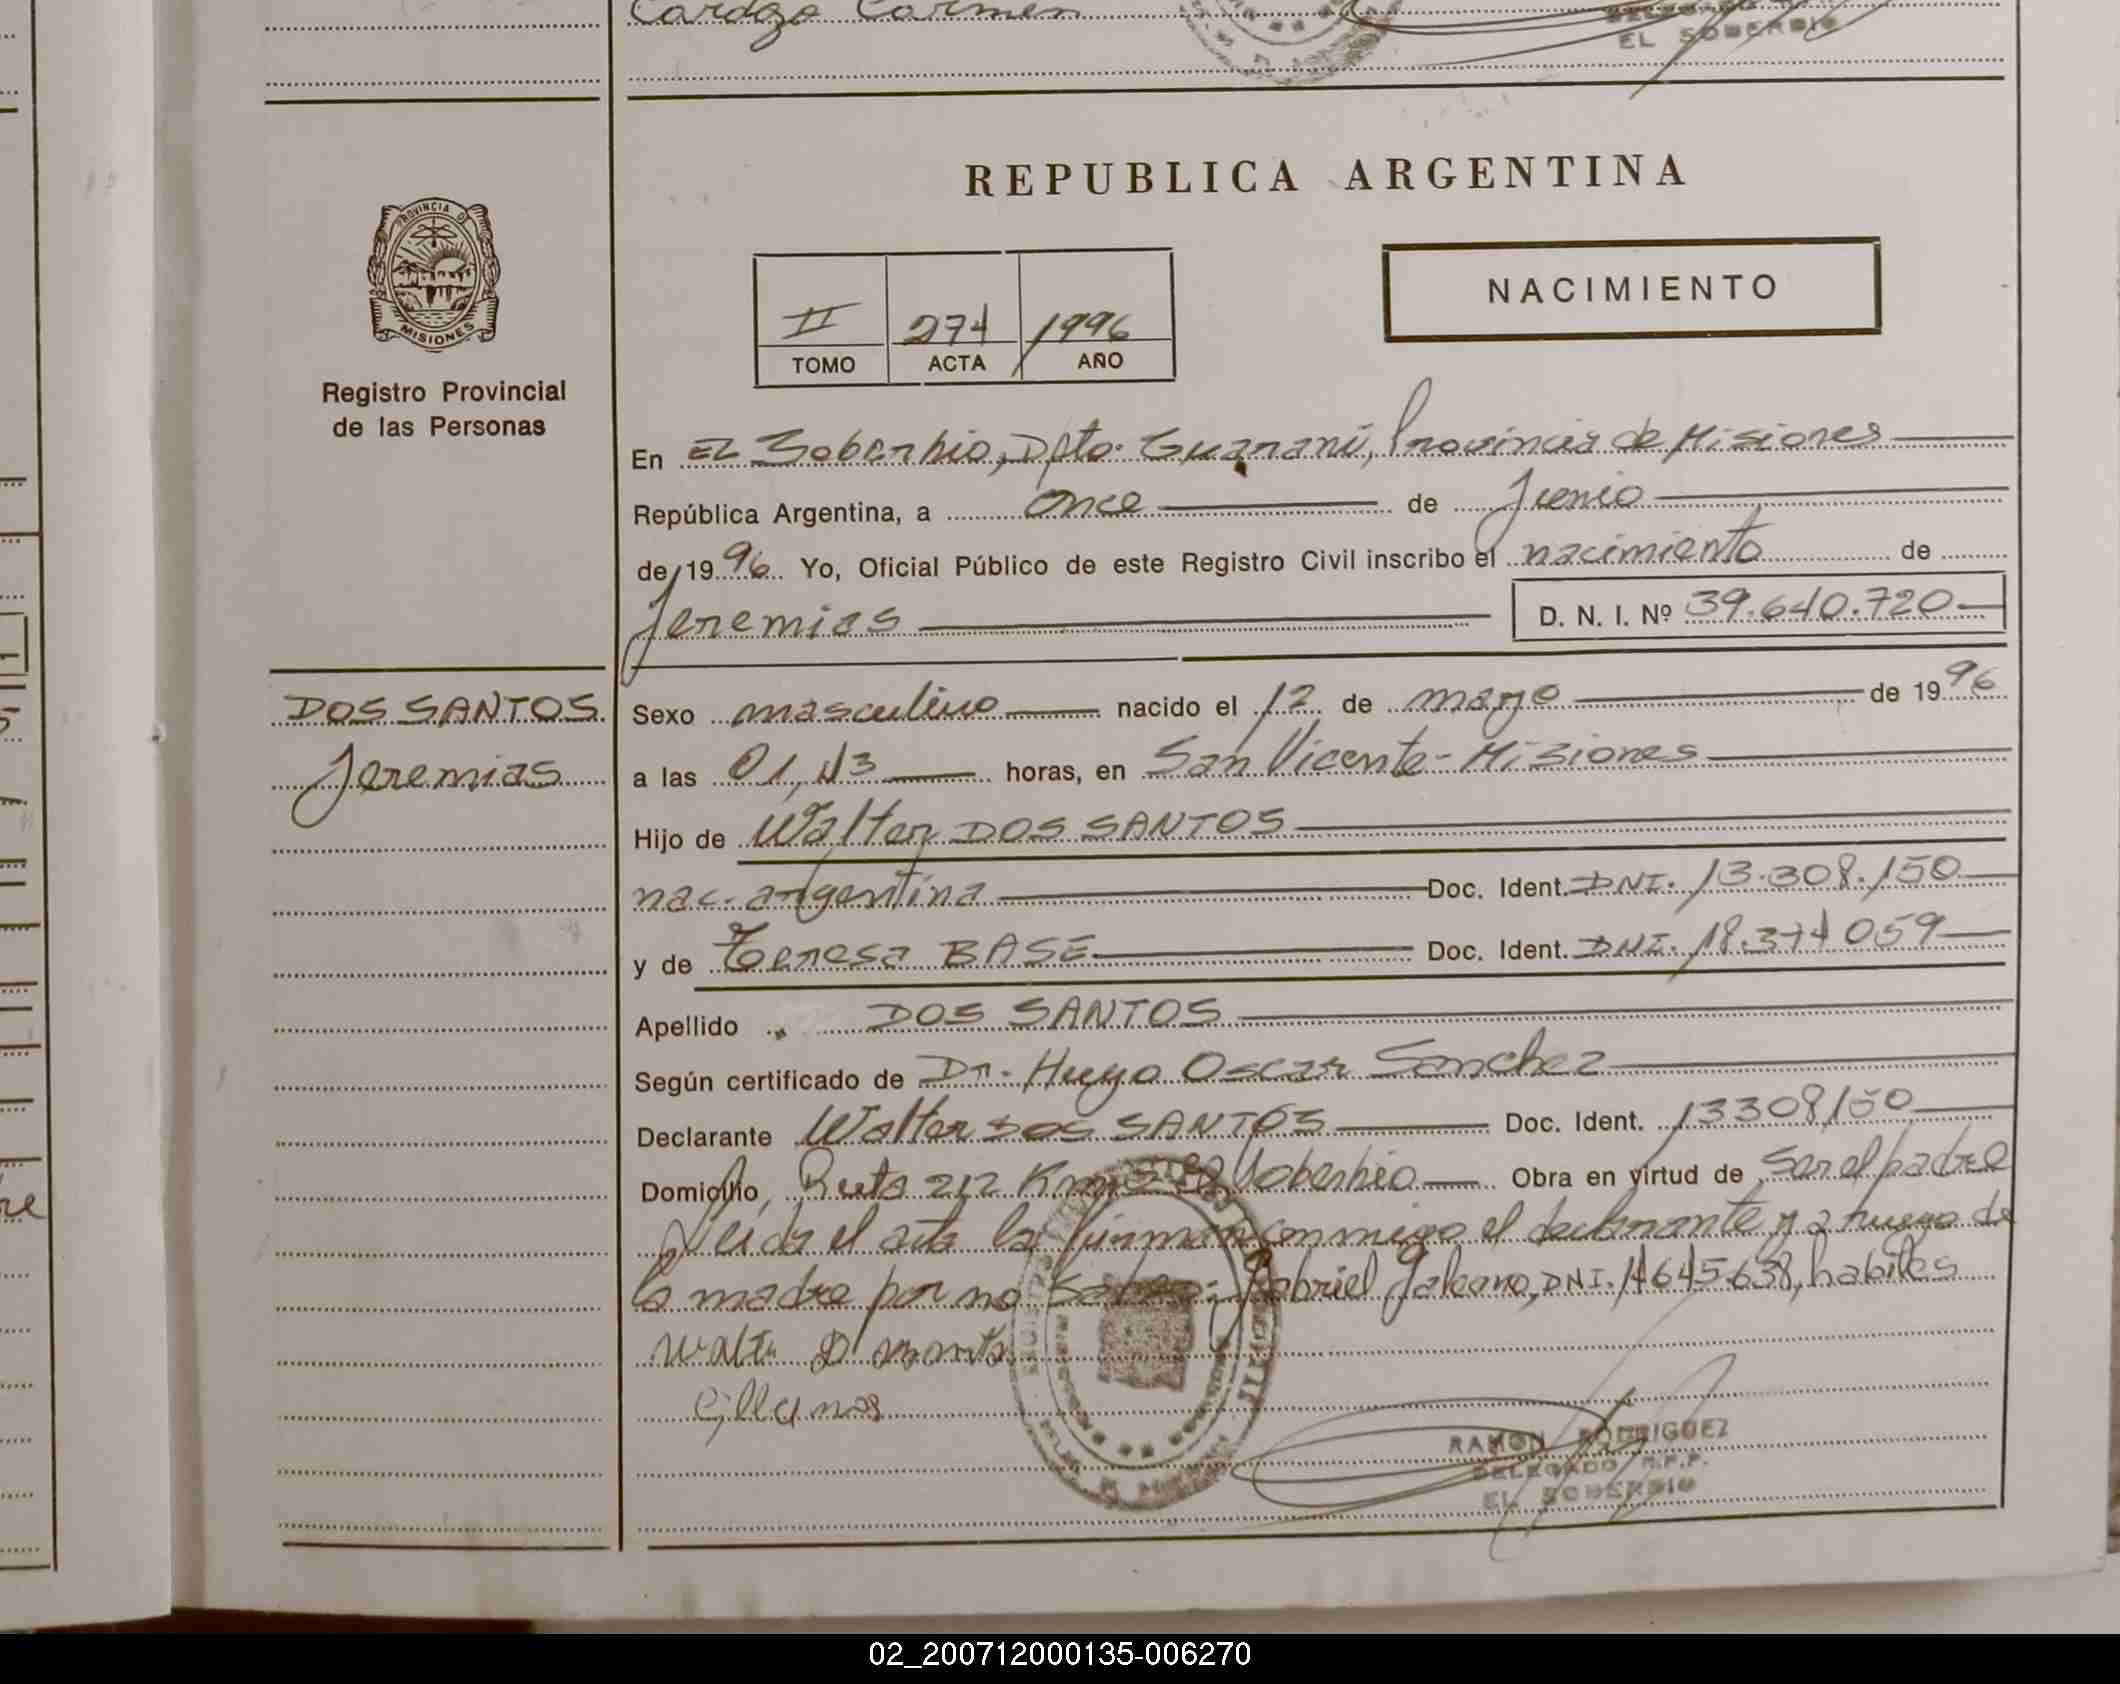 Cardozo Carmen
EL SOBERBIO
REPUBLICA ARGENTINA
PROVINCIA DE
MISIONES
Registro Provincial
de las Personas
II 274 1996
TOMO ACTA AÑO
NACIMIENTO
En EL Soberbio, Dpto. Guaraní, Provincia de Misiones
República Argentina, a once de Junio
de 1996 Yo, Oficial Público de este Registro Civil inscribo el nacimiento de
Jeremias D. N. I. Nº 39.640.720
DOS SANTOS
Jeremias
Sexo masculino nacido el 12 de marzo de 1996
a las 01,43 horas, en San Vicente - Misiones
Hijo de Walter DOS SANTOS
nac. argentina Doc. Ident. DNI. 13.308.150
y de Teresa BASE Doc. Ident. DNI. 18.374 059
Apellido DOS SANTOS
Según certificado de Dr. Hugo Oscar Sanchez
Declarante Walter DOS SANTOS Doc. Ident. 13308150
Domicilio Ruta 212 Km El Soberbio Obra en virtud de Ser el padre
Leida el acta la firman conmigo el declarante y a ruego de
la madre por no Gabriel Galeano, DNI. 14645.638, habiles
RAMON RODRIGUEZ
DELEGADO R.P.P.
EL SOBERBIO
02_200712000135-006270